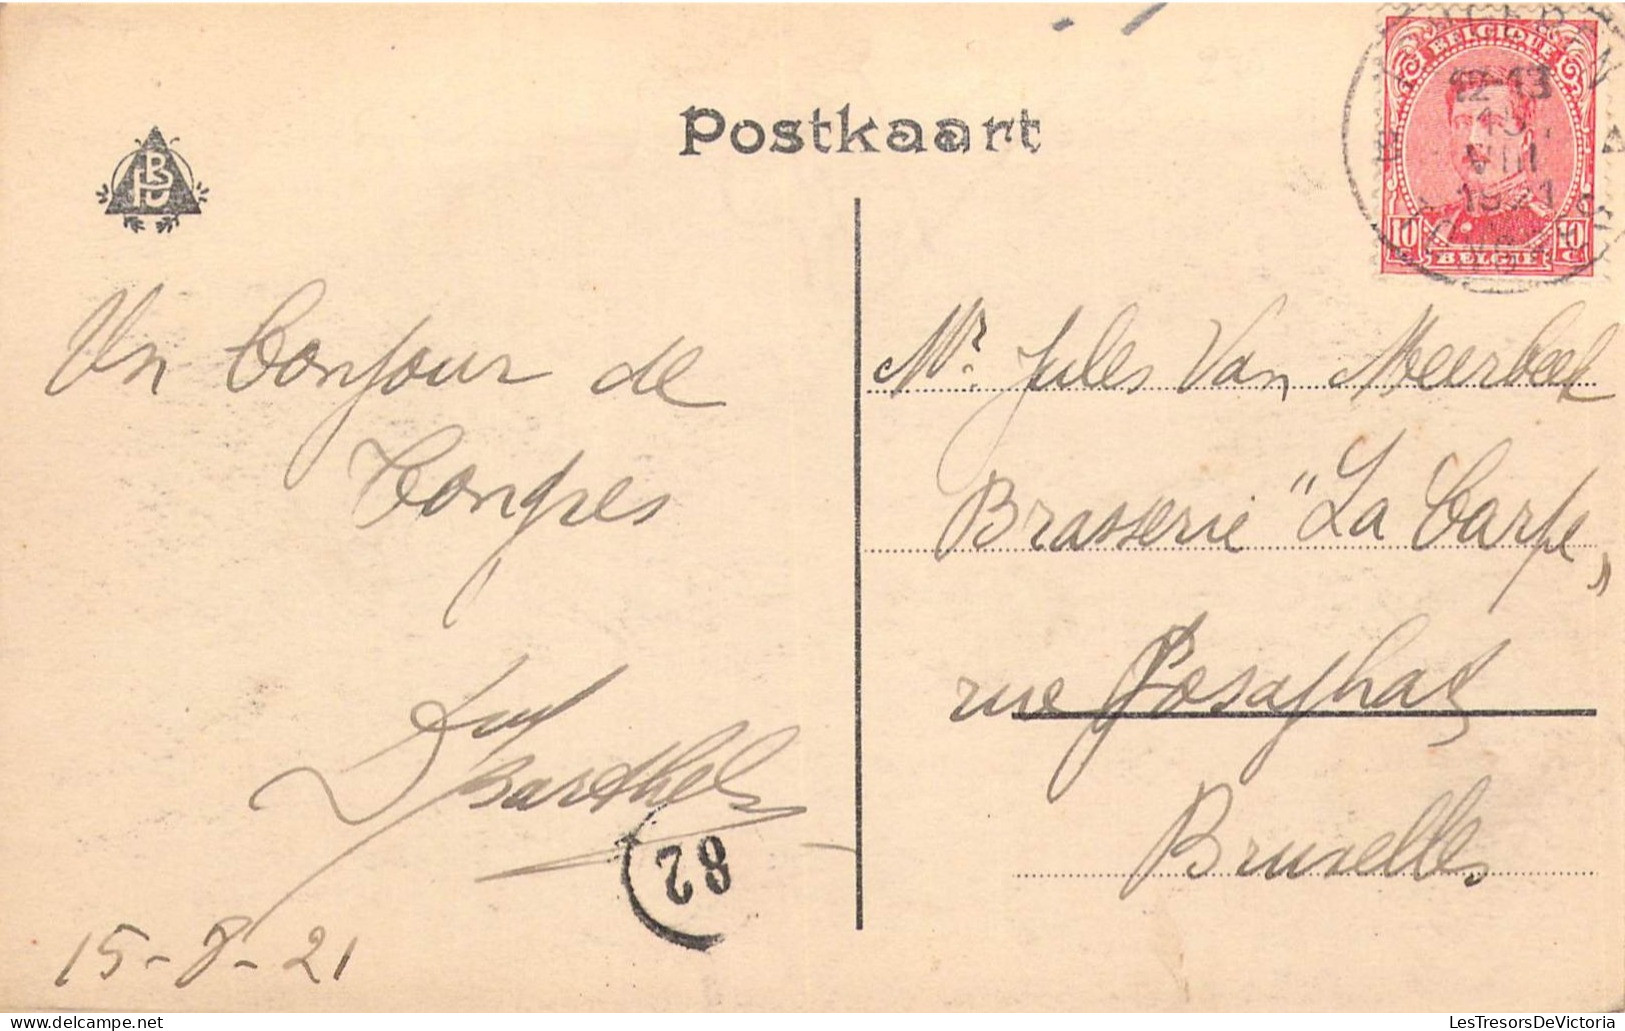 Postkaart
BELGIQUE
12-13
15
VIII
1921
10 c
10 c
BELGIË
Un bonjour de
Tongres
Barthels
82
15-8-21
Mr. Jules Van Meerbeek
Brasserie "La Carpe"
rue Josaphat
Bruxelles
LesTresorsDeVictoria